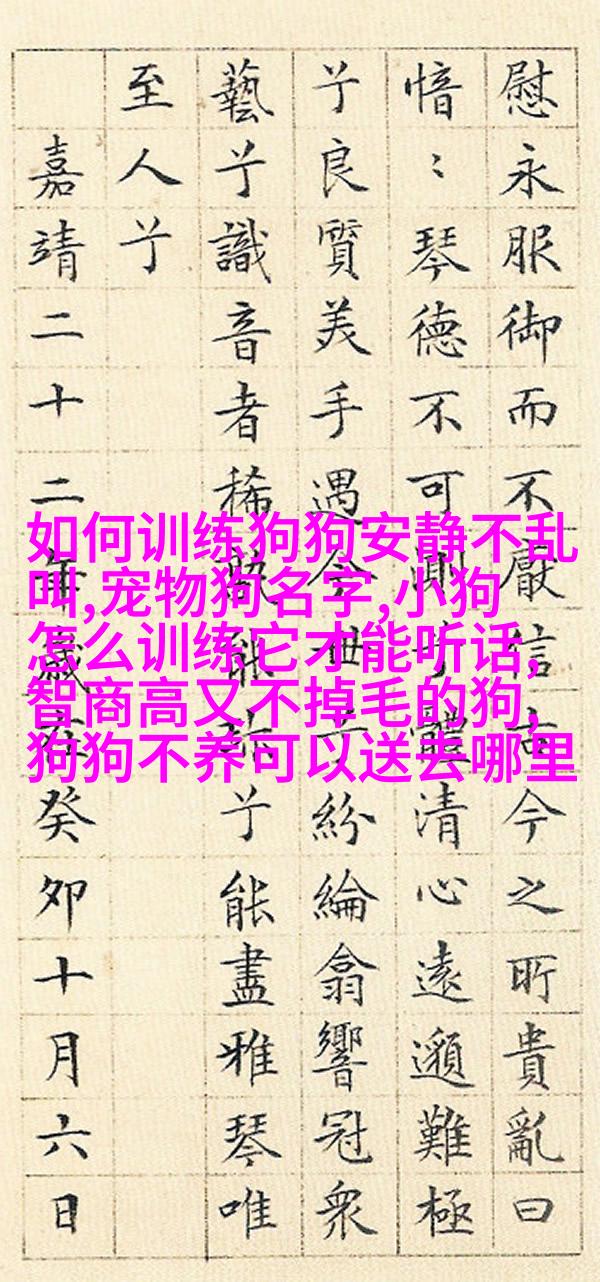 慰永服御而不厭信古今之所貴亂曰
愔〻琴德不可測兮體清心遠邈難極
兮良質美手遇今世兮紛綸翕響冠衆
藝兮識音者稀孰能珍兮能盡雅琴唯
至人兮
嘉靖二十二年歲在癸卯十月六日
如何训练狗狗安静不乱
叫,宠物狗名字,小狗
怎么训练它才能听话,
智商高又不掉毛的狗,
狗狗不养可以送去哪里